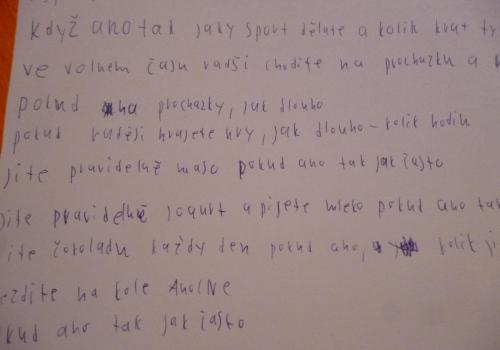 když ano tak jaky sport dělate a kolik krat ty
ve volnem času radši chodite na prochazku a
pokud na prochazky, jak dlouho
pokud raději hrajete hry, jak dlouho - kolik hodin
jite pravidelně maso pokud ano tak jak často
jite pravidelně jogurt a pijete mleko pokud ano tak
ite čokoladu každy den pokud ano, kolik ji
ezdite na kole Ano/NE
kud ano tak jak často